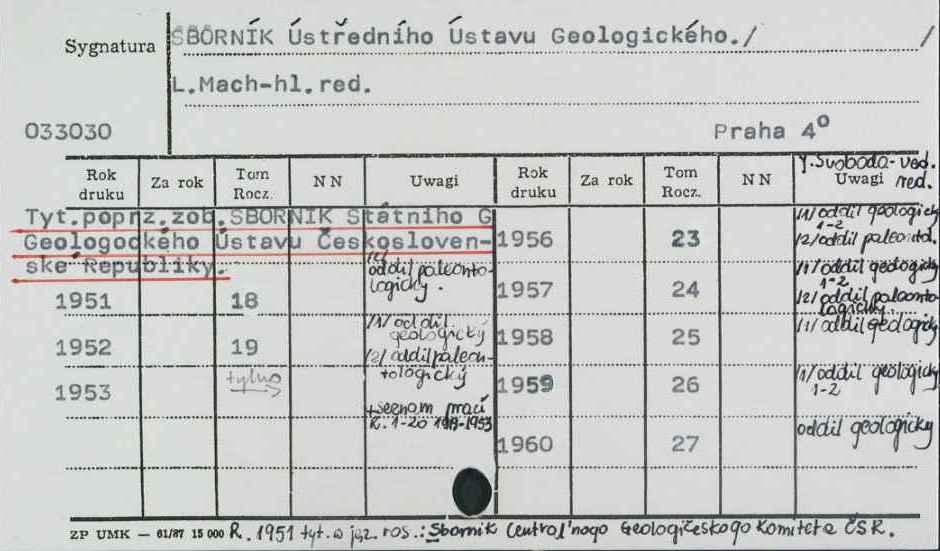 Sygnatura
SBORNÍK Ústředního Ústavu Geologického./ /
L.Mach-hl.red.
033030
Praha 4º
J. Svoboda-ved. red.
Rok druku Za rok Tom Rocz. NN Uwagi Rok druku Za rok Tom Rocz. NN Uwagi
Tyt.poprz.zob.SBORNIK Státního G
Geologockého Ústavu Českosloven-
ske Republiky.
1951 18 /2/ oddil paleontologicky.
1952 19 /1/ oddil geologický /2/ oddil paleontologický
1953 tylno + seznam prací R. 1-20 1919-1953
1956 23 /1/ oddil geologický 1-2 /2/ oddil paleontol.
1957 24 /1/ oddil geologický 1-2 /2/ oddil paleontologický.
1958 25 /1/ oddil geologický
1959 26 /1/ oddil geologický 1-2
1960 27 oddil geologický
ZP UMK — 61/87 15 000 R. 1951 tyt. w jęz. ros.: Sbornik Central'nogo Geologičeskogo Komiteta ČSR.